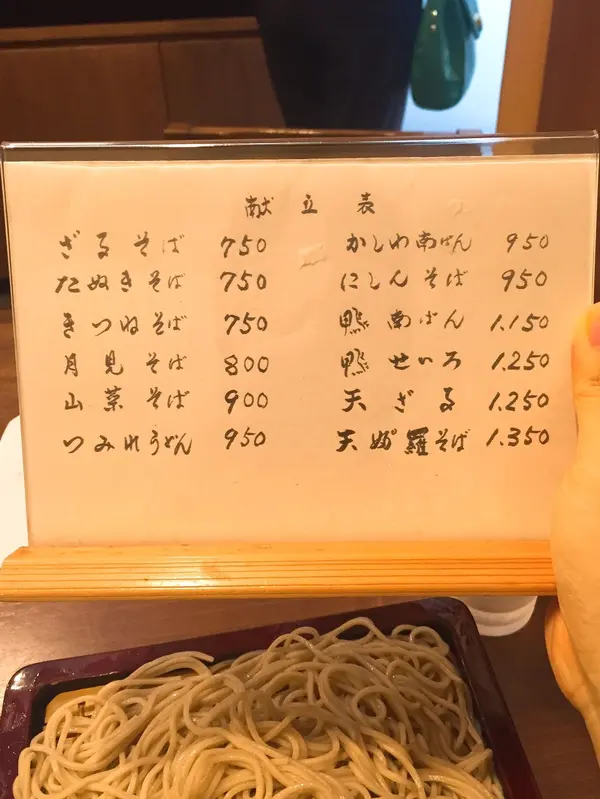 献立表
ざるそば 750
たぬきそば 750
きつねそば 750
月見そば 800
山菜そば 900
つみれうどん 950
かしわ南ばん 950
にしんそば 950
鴨南ばん 1.150
鴨せいろ 1.250
天ざる 1.250
天婦羅そば 1.350